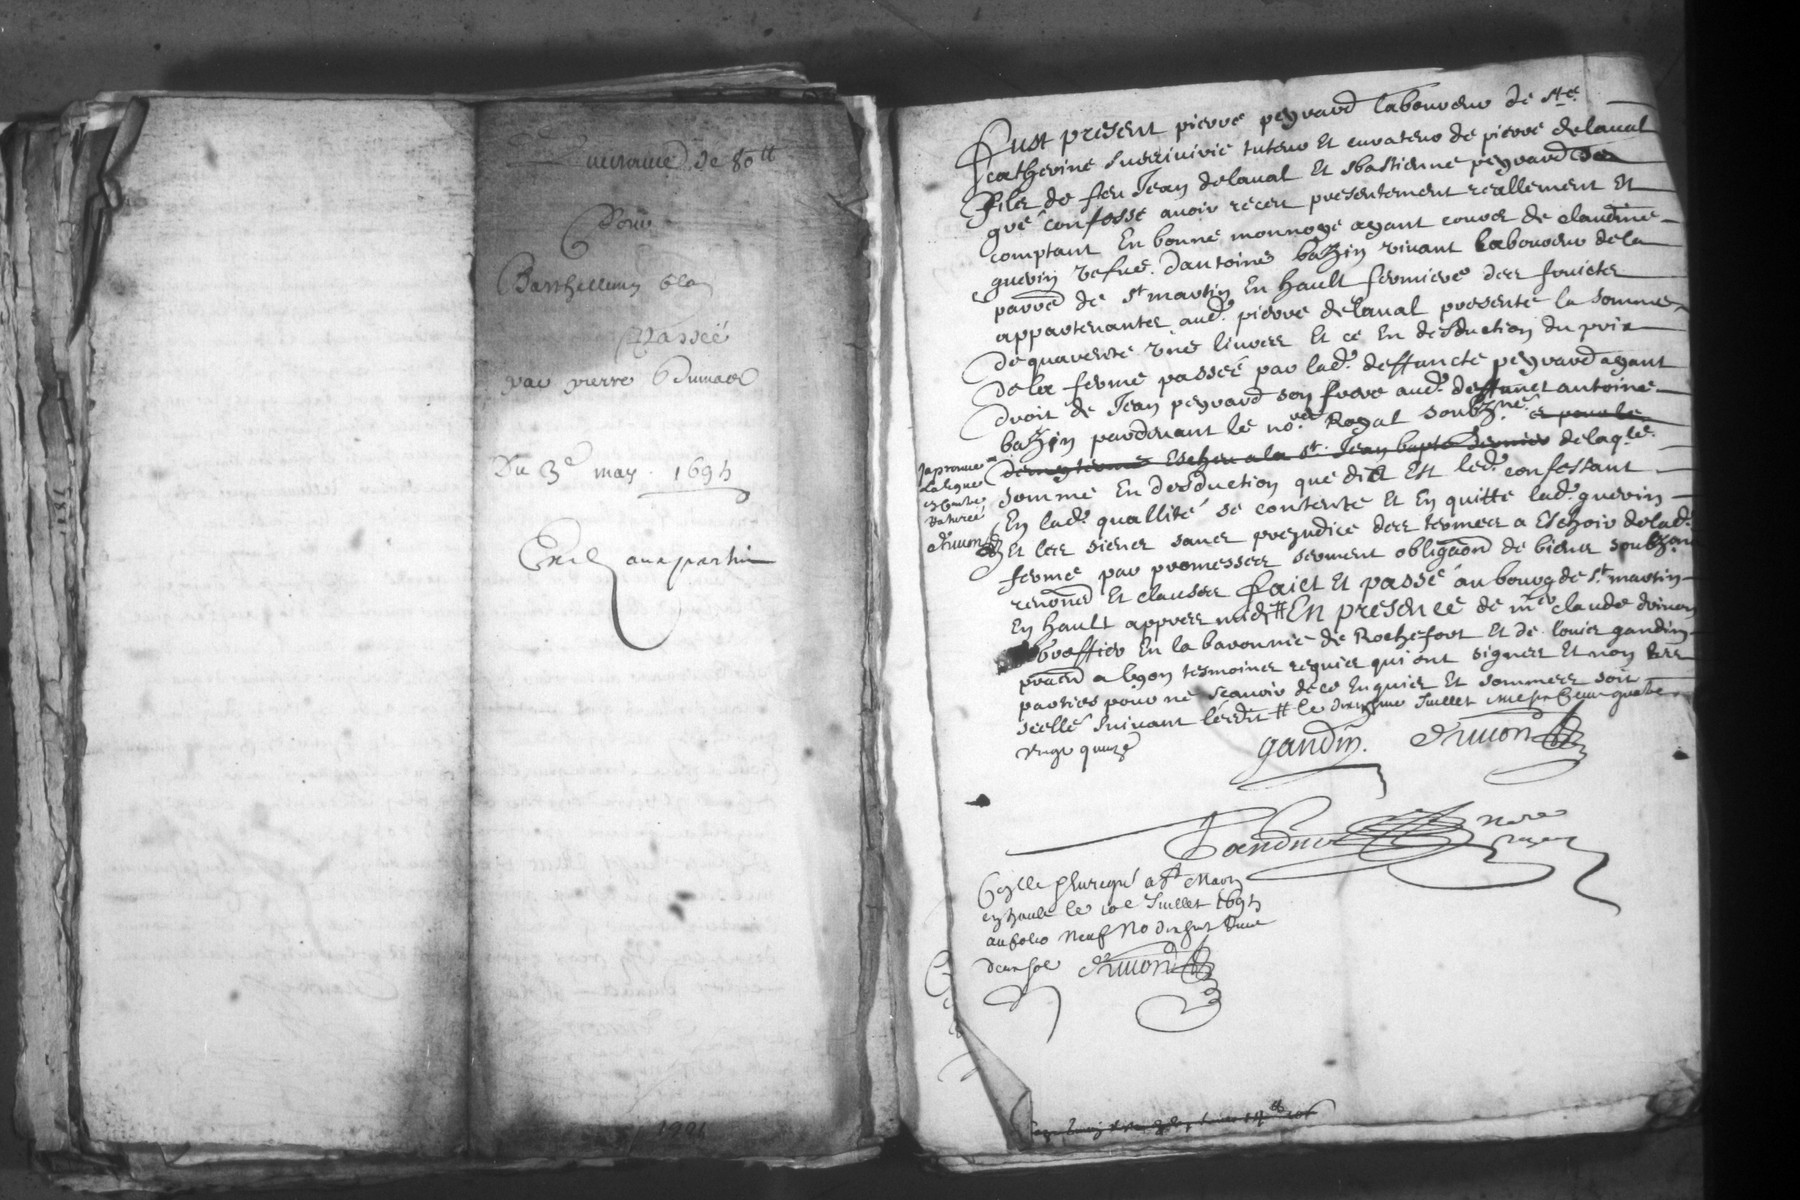 Quittance de 80ᵗᵗ
Pour
Barthellemy
Passeé
par pierre Dumas
Du 3ᵉ may 1695
Exp aux parties
Fust present pierre peyrard laboureur de Stᵉ
catherine sur riuirie tuteur et curateur de pierre delaual
filz de feu Jean delaual et sbastienne peyrard
què confesse auoir receu presentement reallement et
comptant En bonne monnoye ayant cours de claudine
guerin vefue dantoine bazin viuant laboureur de la
parre de sᵗ martin En hault fermiere des fruictz
appartenantz aud. pierre delaual presente la somme
de quarente une liures Et ce En desduction du prix
de la ferme passeé par lad. deffuncte peyrard ayant
droit de Jean peyrard son frere aud. deffunct antoine
bazin pardeuant le noʳᵉ Royal soubzⁿᵉ et pour le
demy terme Escheu a la sᵗ Jean bapte dernier de laqˡᵉ
somme En desduction que dict Est led. confessant
En lad. quallité se contente Et En quitte lad. guerin
Et les siens sans prejudice des termes a Eschoir de lad.
ferme par promesses serment obligaon de biens soubzon
renonon Et clauses faict Et passé au bourg de sᵗ martin
En hault appres midy # En presence de mʳᵉ claude driuon
greffier En la baronnie de Rochefort Et de louis gandin
praen a lyon tesmoins requis qui ont signes Et non les
parties pour ne sçauoir de ce Enquis Et sommes soit
scellé suiuant lesdit # le dixiesme Juillet mil six cens quatre
vingt quinze
Japrouue
la ligne
et Contre
Ratureé
driuon
gandin. driuon
nore
royal
Scelle et Contrerolé a Sᵗ Martin
en hault le 10ᵉ Juillet 1695
au folio neuf
driuon
1221